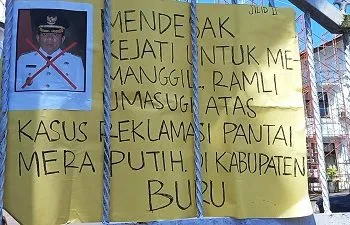 JILID II
MENDESAK
KEJATI UNTUK ME-
MANGGIL. RAMLI
UMASUGI ATAS
KASUS REKLAMASI PANTAI
MERA PUTIH. DI KABUPATEN
BURU